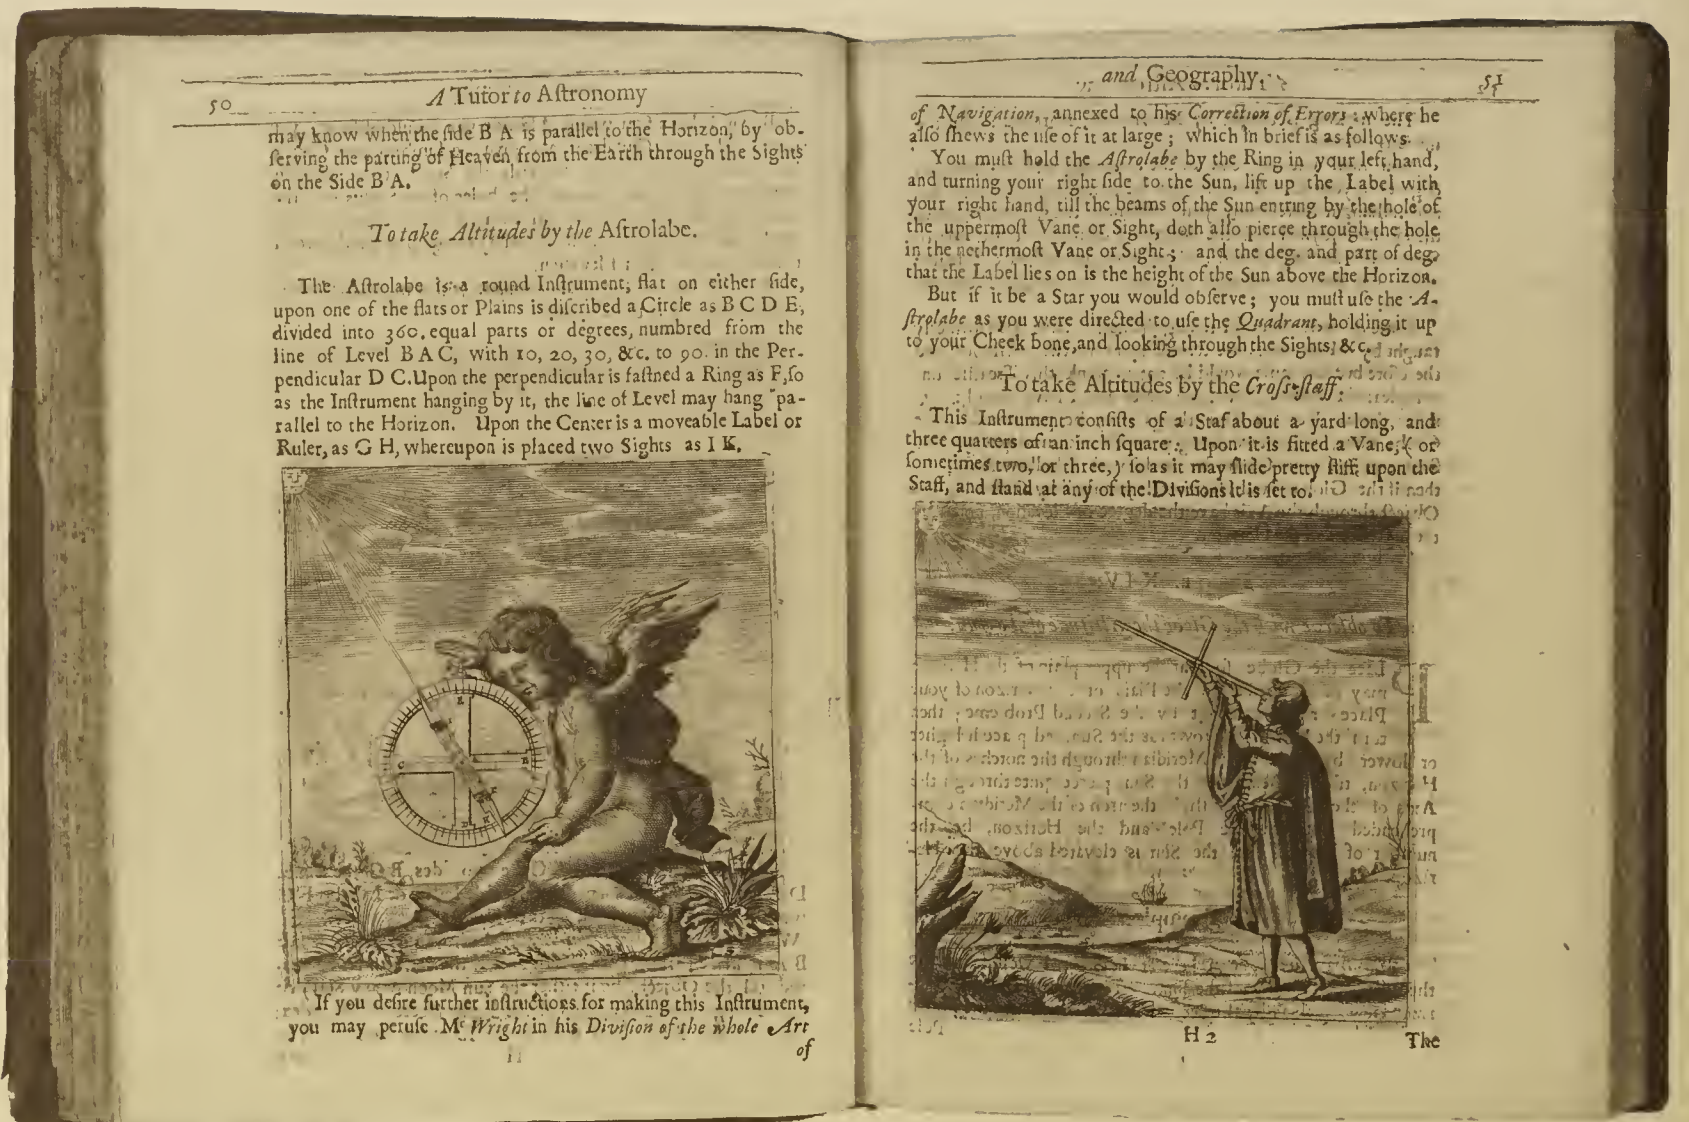 50
A Tutor to Aſtronomy
may know when the ſide B A is parallel to the Horizon, by ob-
ſerving the parting of Heaven from the Earth through the Sights
on the Side B A.
To take Altitudes by the Aſtrolabe.
The Aſtrolabe is a round Inſtrument, flat on either ſide,
upon one of the flats or Plains is diſcribed a Circle as B C D E,
divided into 360. equal parts or degrees, numbred from the
line of Level B A C, with 10, 20, 30, &c. to 90. in the Per-
pendicular D C. Upon the perpendicular is faſtned a Ring as F, ſo
as the Inſtrument hanging by it, the line of Level may hang pa-
rallel to the Horizon. Upon the Center is a moveable Label or
Ruler, as G H, whereupon is placed two Sights as I K.
E
C
B
D
If you deſire further inſtructions for making this Inſtrument,
you may peruſe Mr Wright in his Diviſion of the whole Art
of
and Geography.
51
of Navigation, annexed to his Correction of Errors: where he
alſo ſhews the uſe of it at large; which in brief is as follows.
You muſt hold the Aſtrolabe by the Ring in your left hand,
and turning your right ſide to the Sun, lift up the Label with
your right hand, till the beams of the Sun entring by the hole of
the uppermoſt Vane or Sight, doth alſo pierce through the hole
in the nethermoſt Vane or Sight; and the deg. and part of deg.
that the Label lies on is the height of the Sun above the Horizon.
But if it be a Star you would obſerve; you muſt uſe the A-
ſtrolabe as you were directed to uſe the Quadrant, holding it up
to your Cheek bone, and looking through the Sights, &c.
To take Altitudes by the Croſs-ſtaff.
This Inſtrument conſiſts of a Staf about a yard long, and
three quarters of an inch ſquare: Upon it is fitted a Vane, ( or
ſometimes two, or three, ) ſo as it may ſlide pretty ſtiff upon the
Staff, and ſtand at any of the Diviſions it is ſet to.
H 2
The